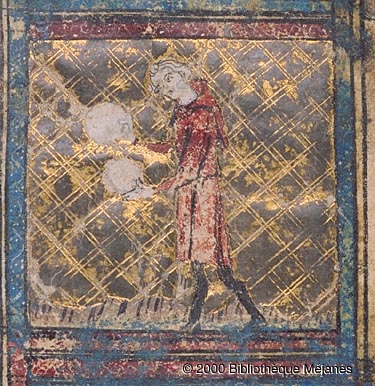 © 2000 Bibliothèque Méjanes